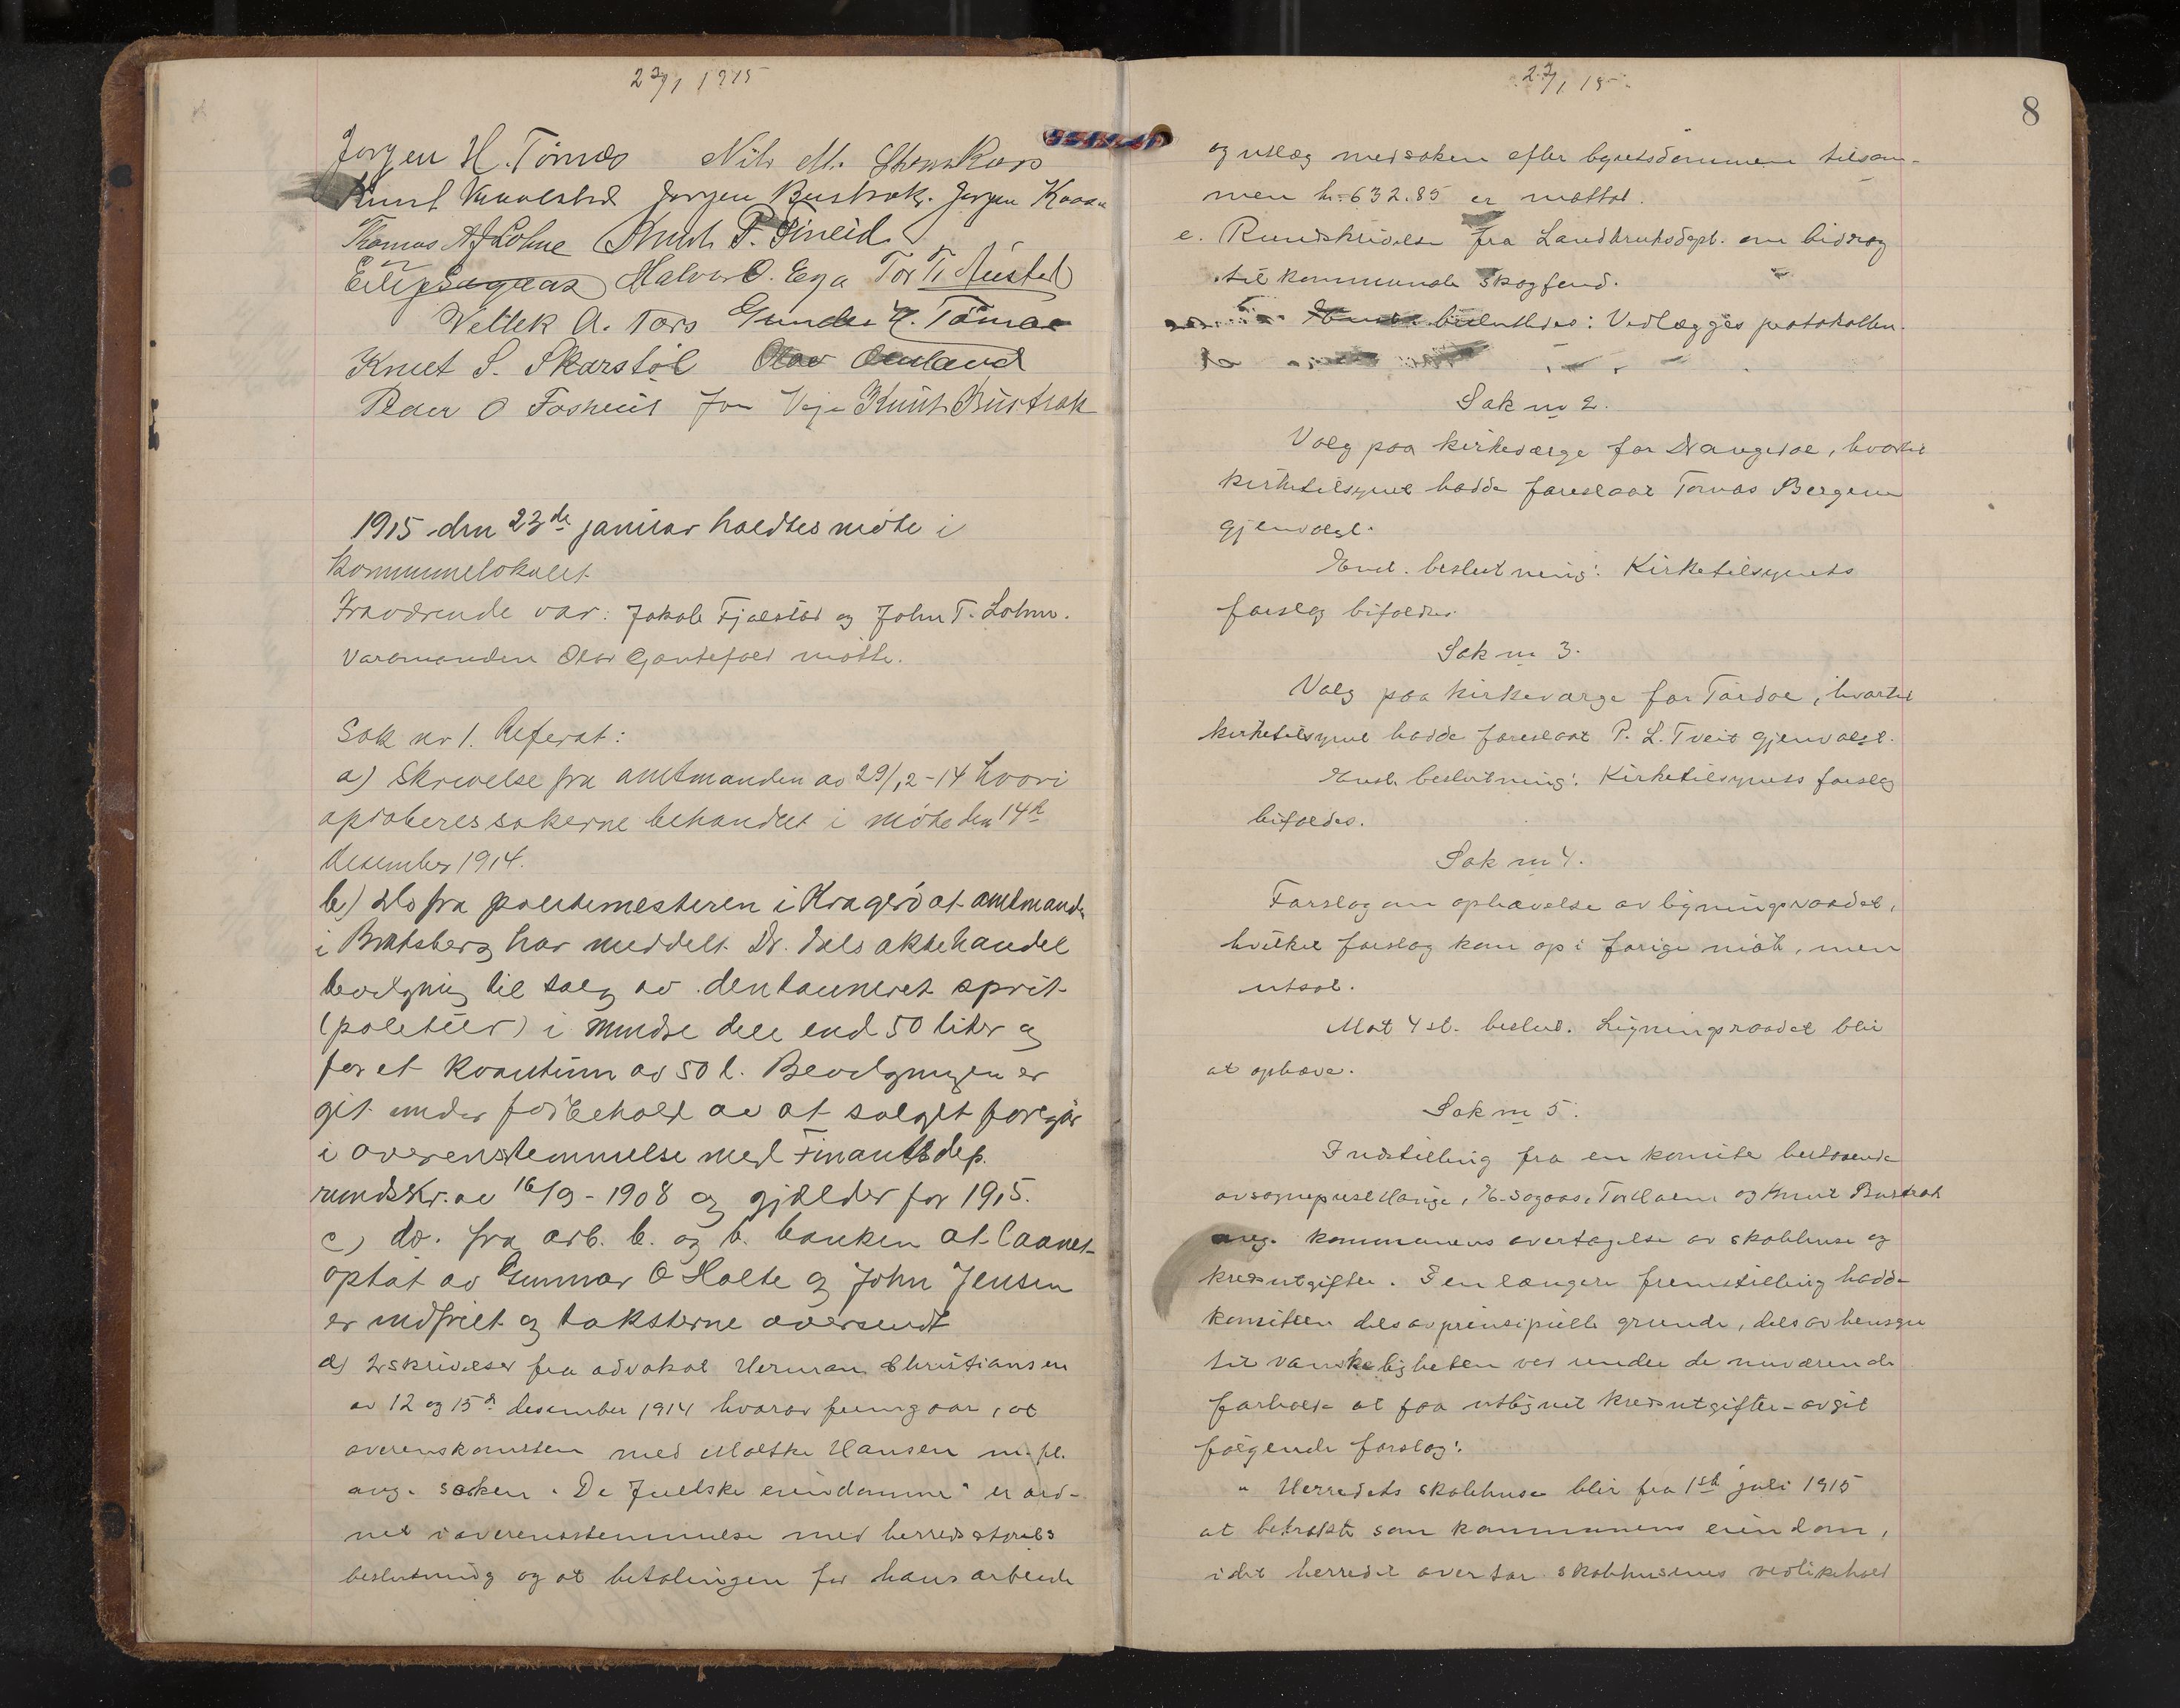 23/1 1915
Jørgen H. Tørnæs Nils M.
Knut Jørgen Bustrak. Jørgen
Thomas A. Lohne Knut P. Fineid
Eilif Sugaas Halvor O. Eya Tor T. Austad
Vettek A. Tors Gunder H. Tørnæs
Knut S. Skarstøl Olav Omland
Peder O Fosheim Jon Knut Bustrak
1915 den 23de januar holdtes møte i
kommunelokalet.
Fraværende var: Jakob Fjalestad og John T. Lohne.
Varamanden Olav Gautefald møtte.
Sak nr 1. Referat:
a) Skrivelse fra amtmanden av 29/12-14 hvori
aproberes sakerne behandlet i møte den 14de
desember 1914.
b) Do fra politimesteren i Kragerø at amtmanden
i Bratsberg har meddelt Dr. dals aktiehandel
bevilgning til salg av denaturert sprit
(politur) i mindre dele end 50 liter og
for et kvantum av 50 l. Bevilgningen er
git under forbehold av at salget foregår
i overenstemmelse med Finantsdep.
rundskr. av 16/9-1908 og gjælder for 1915.
c) do. fra arb. b. og b. banken at laanet
optat av Gunnar O Holte og John Jensen
er indfriet og taksterne oversendt
d) 2 skrivelser fra advokat Herman Christiansen
av 12 og 15de desember 1914 hvorav fremgaar, at
overenskomsten med Moltke Hansen m. fl.
ang. saken "De Juelske eiendomme" er ord-
net i overensstemmelse med herredsstyrets
beslutning og at betalingen for hans arbeide
23/1 15.
8
og utlæg med saken efter byretsdommen tilsam-
men kr. 632.85 er mottat.
e. Rundskrivelse fra Landbruksdept. om bidrag
til kommunale skogfond.
besluttedes: Vedlægges protokollen.
Sak nr 2.
Valg paa kirkeværge for Drangedal, hvortil
kirketilsynet hadde foreslaat Tomas Bergene
gjenvalgt.
Enst. beslutning: Kirketilsynets
forslag bifaldtes.
Sak nr 3.
Valg paa kirkeværge for Tørdal, hvortil
kirketilsynet hadde foreslaat P. L. Tveit gjenvalgt.
Enst. beslutning: Kirketilsynets forslag
bifaldes.
Sak nr 4.
Forslag om ophævelse av ligningsraadet,
hvilket forslag kom op i forige møte, men
utsat.
Mot 4 st. beslut. Ligningsraadet blir
at ophæve.
Sak nr 5.
Indstilling fra en komite bestaaende
av sogneprest Hauge, E. Sogaas, Tor Halme og Knut Bustrak
ang. kommunens overtagelse av skolehuse og
kredsutgifter. I en længere fremstilling hadde
komiteen dels av prinsipielle grunde, dels av hensyn
til vanskeligheten ved under de nuværende
forholde at faa utlignet kredsutgifter - avgit
følgende forslag:
" Herredets skolehuse blir fra 1ste juli 1915
at betrakte som kommunens eiendom,
idet herredet overtar skolehusenes vedlikehold